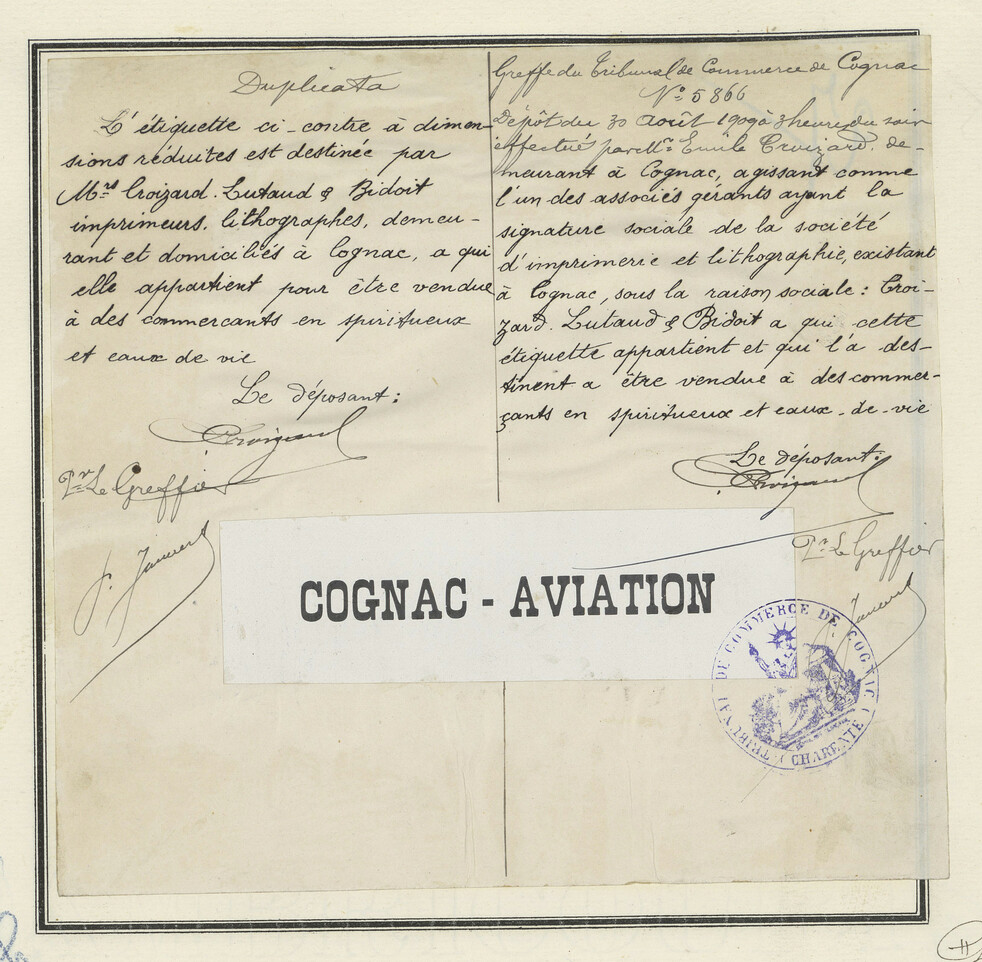 Duplicata
L'étiquette ci-contre à dimen-
sions réduites est destinée par
Mrs Croizard. Lutaud & Bidoit
imprimeurs. lithographes, demeu-
rant et domiciliés à Cognac, a qui
elle appartient pour être vendue
à des commercants en spiritueux
et eaux de vie
Le déposant:
Croizard
Pr Le Greffier
Greffe du Tribunal de Commerce de Cognac
No 5866
Dépôt du 30 Août 1909 à 3 heures du soir
effectué par Mr. Emile Croizard. de-
meurant à Cognac, agissant comme
l'un des associés gérants ayant la
signature sociale de la société
d'imprimerie et lithographie, existant
à Cognac, sous la raison sociale: Croi-
zard. Lutaud & Bidoit a qui cette
étiquette appartient et qui l'a des-
tinent a être vendue à des commer-
çants en spiritueux et eaux-de-vie
Le déposant:
Croizard
Pr Le Greffier
COGNAC - AVIATION
TRIBUNAL DE COMMERCE DE COGNAC
(CHARENTE)